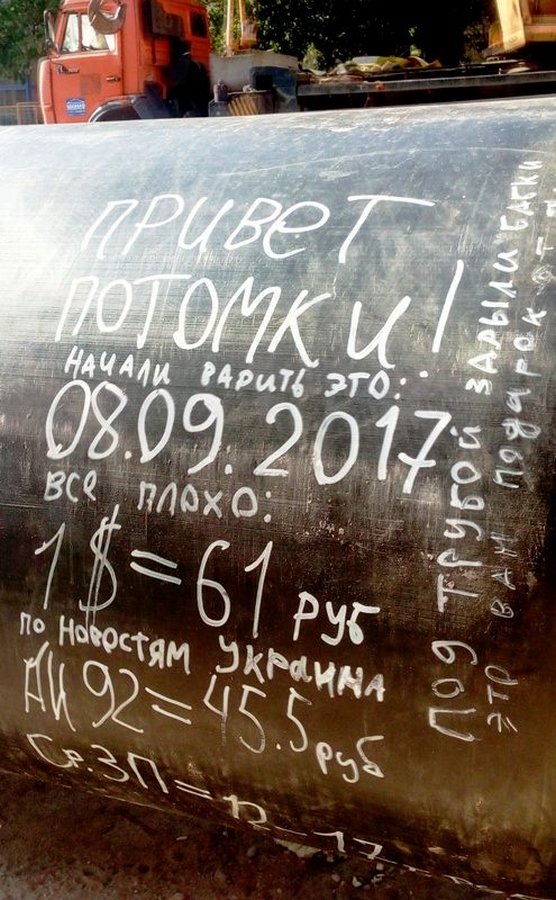 ПРИВЕТ
ПОТОМКИ!
НАЧАЛИ ВАРИТЬ ЭТО:
08.09.2017
ВСЕ ПЛОХО:
1$=61 РУБ
ПО НОВОСТЯМ УКРАИНА
АИ 92=45.5 РУБ
СР.ЗП=12-17
ПОД ТРУБОЙ ЗАРЫЛИ БАГКИ
ЭТО ВАМ ПОДАРОК